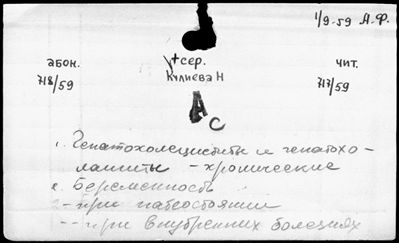 1/9-59 А.Ф.
+ сер.
абон. чит.
718/59 Кулиева Н 717/59
А с
1. Гепатохолециститы и гепатохо-
лангиты - хронические
2. Беременность
2 - при патсостоянии
-- при внутренних болезнях